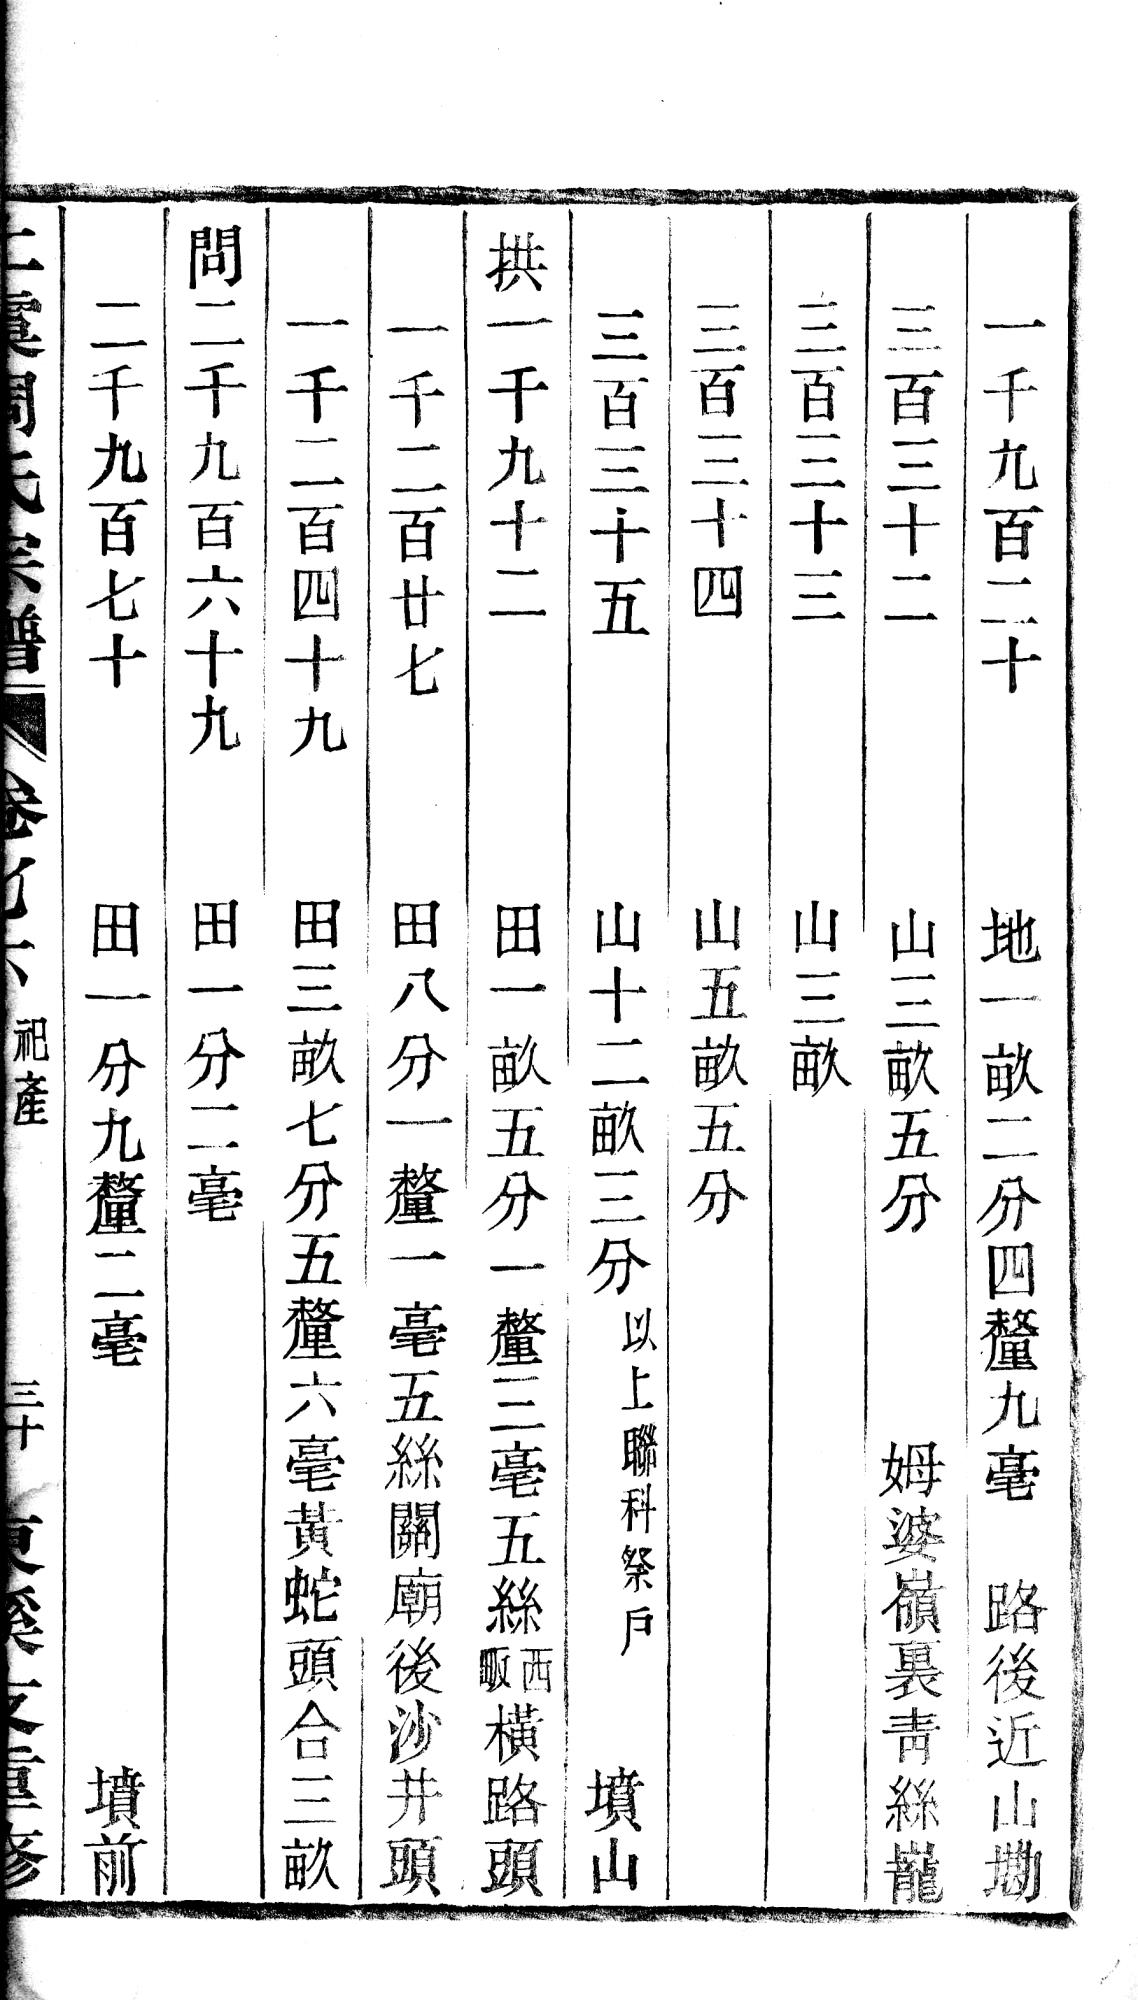 一千九百二十 地一畝二分四釐九毫 路後近山塛
三百三十二 山三畝五分 姆婆嶺裏靑絲巃
三百三十三 山三畝
三百三十四 山五畝五分
三百三十五 山十二畝三分 以上聯科祭戶 墳山
拱一千九十二 田一畝五分一釐三毫五絲 西畈 橫路頭
一千二百廿七 田八分一釐一毫五絲 關廟後沙井頭
一千二百四十九 田三畝七分五釐六毫 黃蛇頭合三畝
問二千九百六十九 田一分二毫
二千九百七十 田一分九釐二毫 墳前
上虞周氏宗譜 卷 六 祀產 三十 東溪支重修